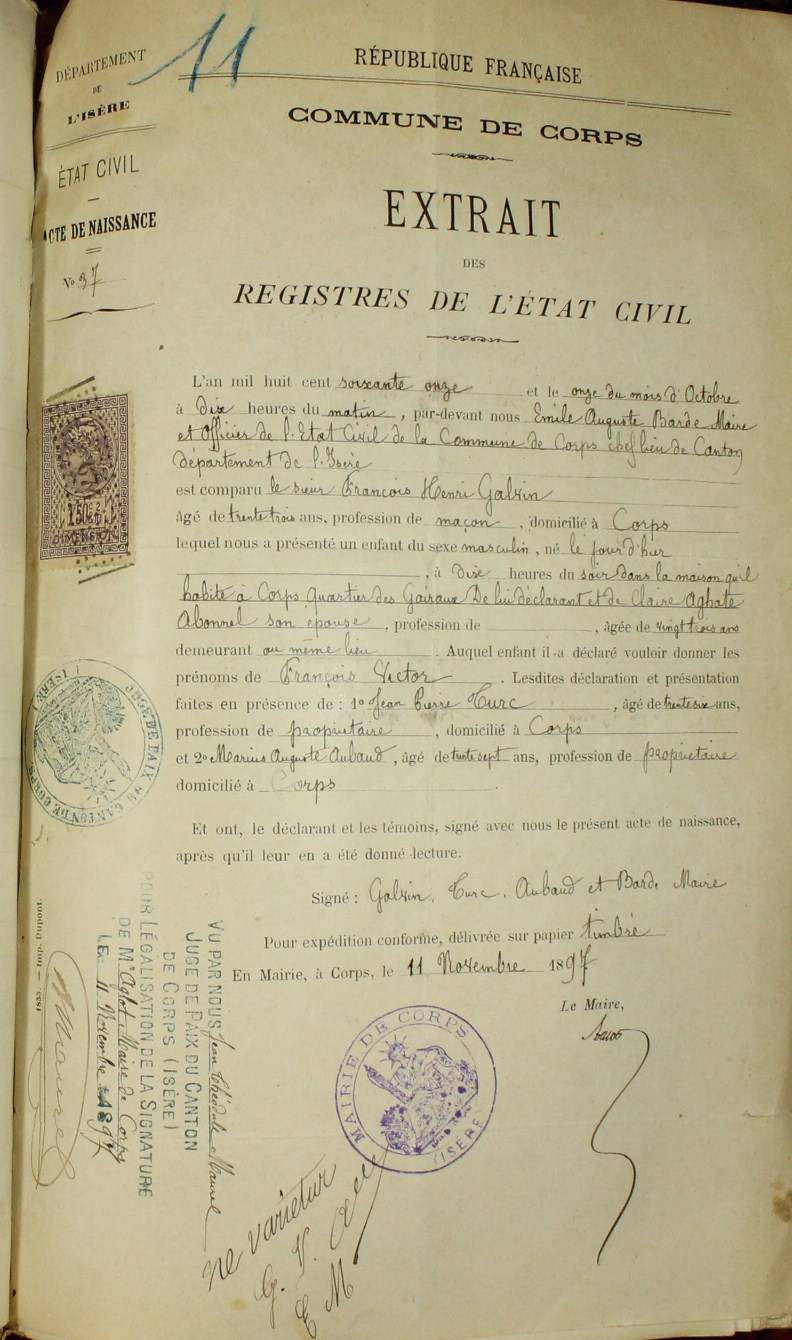 11
DÉPARTEMENT
DE
L'ISÈRE
ÉTAT CIVIL
ACTE DE NAISSANCE
No 37
RÉPUBLIQUE FRANÇAISE
COMMUNE DE CORPS
EXTRAIT
DES
REGISTRES DE L'ÉTAT CIVIL
L'an mil huit cent soixante onze et le onze du mois d'Octobre
à Dix heures du matin, par-devant nous Emile Auguste Barde Maire
et Officier de l'Etat Civil de la Commune de Corps chef lieu de Canton
département de l'Isère
est comparu le sieur François Henri Galvin
âgé de trente trois ans, profession de maçon, domicilié à Corps
lequel nous a présenté un enfant du sexe masculin, né le jour d'hier
, à Dix heures du soir dans la maison qu'il
habite à Corps quartier des De lui déclarant et de Claire Aghate
Abonnel son épouse, profession de , âgée de vingt trois ans
demeurant au même lieu. Auquel enfant il a déclaré vouloir donner les
prénoms de François Victor. Lesdites déclaration et présentation
faites en présence de : 1o Jean Pierre Turc, âgé de trente six ans,
profession de propriétaire, domicilié à Corps
et 2o Marius Auguste Aubaud, âgé de trente sept ans, profession de propriétaire
domicilié à Corps.
Et ont, le déclarant et les témoins, signé avec nous le présent acte de naissance,
après qu'il leur en a été donné lecture.
Signé : Galvin, Turc, Aubaud et Barde Maire
Pour expédition conforme, délivrée sur papier timbré
En Mairie, à Corps, le 11 Novembre 1897
Le Maire,
MAIRIE DE CORPS
(ISÈRE)
ne varietur
G. V.
E M
1f50c
DIMENSION
JUGE DE PAIX DU CANTON DE CORPS
(ISÈRE)
VU PAR NOUS Jean Théodule Maurel
JUGE DE PAIX DU CANTON
DE CORPS (ISÈRE)
POUR LÉGALISATION DE LA SIGNATURE
DE Mr Aglot Maire de Corps
LE 11 Novembre 1897
Maurel